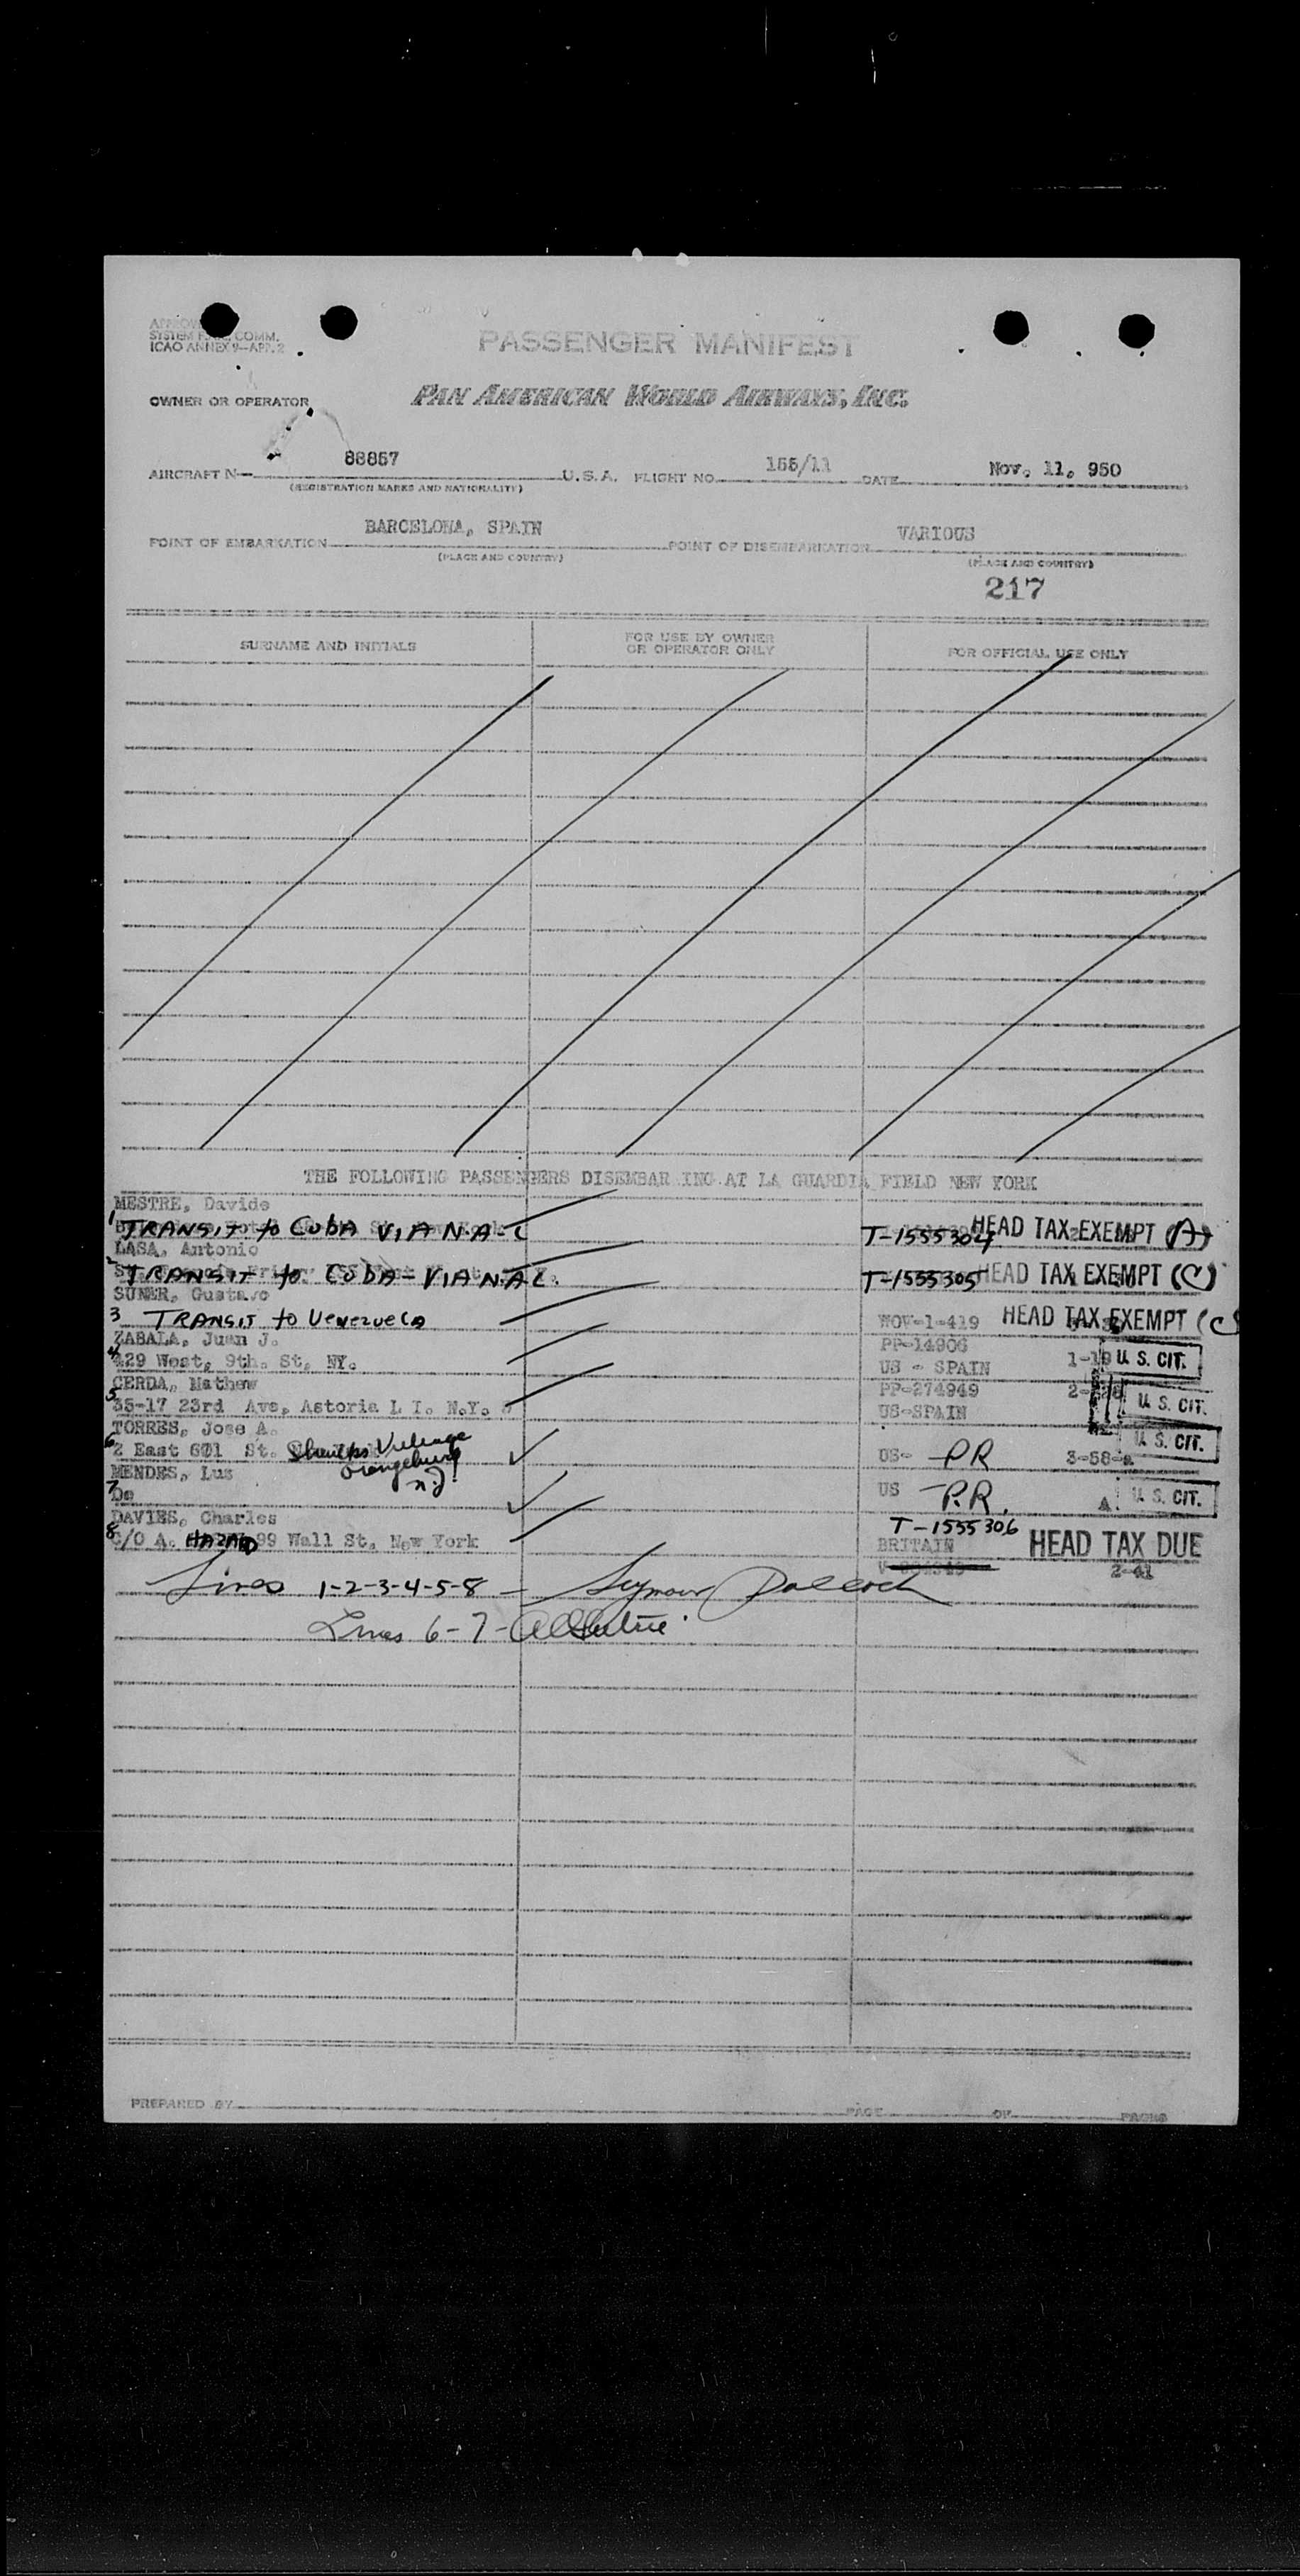 SYSTEM COMM.
ICAO ANNEX 9-APP. 2
PASSENGER MANIFEST
OWNER OR OPERATOR
PAN AMERICAN WORLD AIRWAYS, INC.
AIRCRAFT N- 88857 U.S.A. FLIGHT NO. 155/11 DATE Nov. 11, 950
(REGISTRATION MARKS AND NATIONALITY)
POINT OF EMBARKATION BARCELONA, SPAIN POINT OF DISEMBARKATION VARIOUS
(PLACE AND COUNTRY) (PLACE AND COUNTRY)
217
SURNAME AND INITIALS FOR USE BY OWNER OR OPERATOR ONLY FOR OFFICIAL USE ONLY
THE FOLLOWING PASSENGERS DISEMBAR ING AT LA GUARDIA FIELD NEW YORK
MESTRE, Davide
1 TRANSIT to CUBA VIA N.A.L T-1555304 HEAD TAX EXEMPT (A)
LASA, Antonio
2 TRANSIT to CUBA - VIA N.A.L. T-1555305 HEAD TAX EXEMPT (C)
SUNER, Gustavo
3 TRANSIT to Venezuela WOV-1-419 HEAD TAX EXEMPT (C)
ZABALA, Juan J. PP-14906
4 429 West, 9th. St, NY. US - SPAIN U. S. CIT.
CERDA, Mathew PP-274949
5 35-17 23rd Ave, Astoria L I. N.Y. US-SPAIN U. S. CIT.
TORRES, Jose A.
6 2 East 601 St. Village Orangeburg US- PR 3-58-a U. S. CIT.
MENDES, Luz
7 Do US - P.R. U. S. CIT.
DAVIES, Charles T-1555306
8 C/O A. HAZARD 99 Wall St, New York BRITAIN HEAD TAX DUE
2-41
Lines 1-2-3-4-5-8 - Seymour Pollock
Lines 6-7-
PREPARED BY PAGE OF PAGES